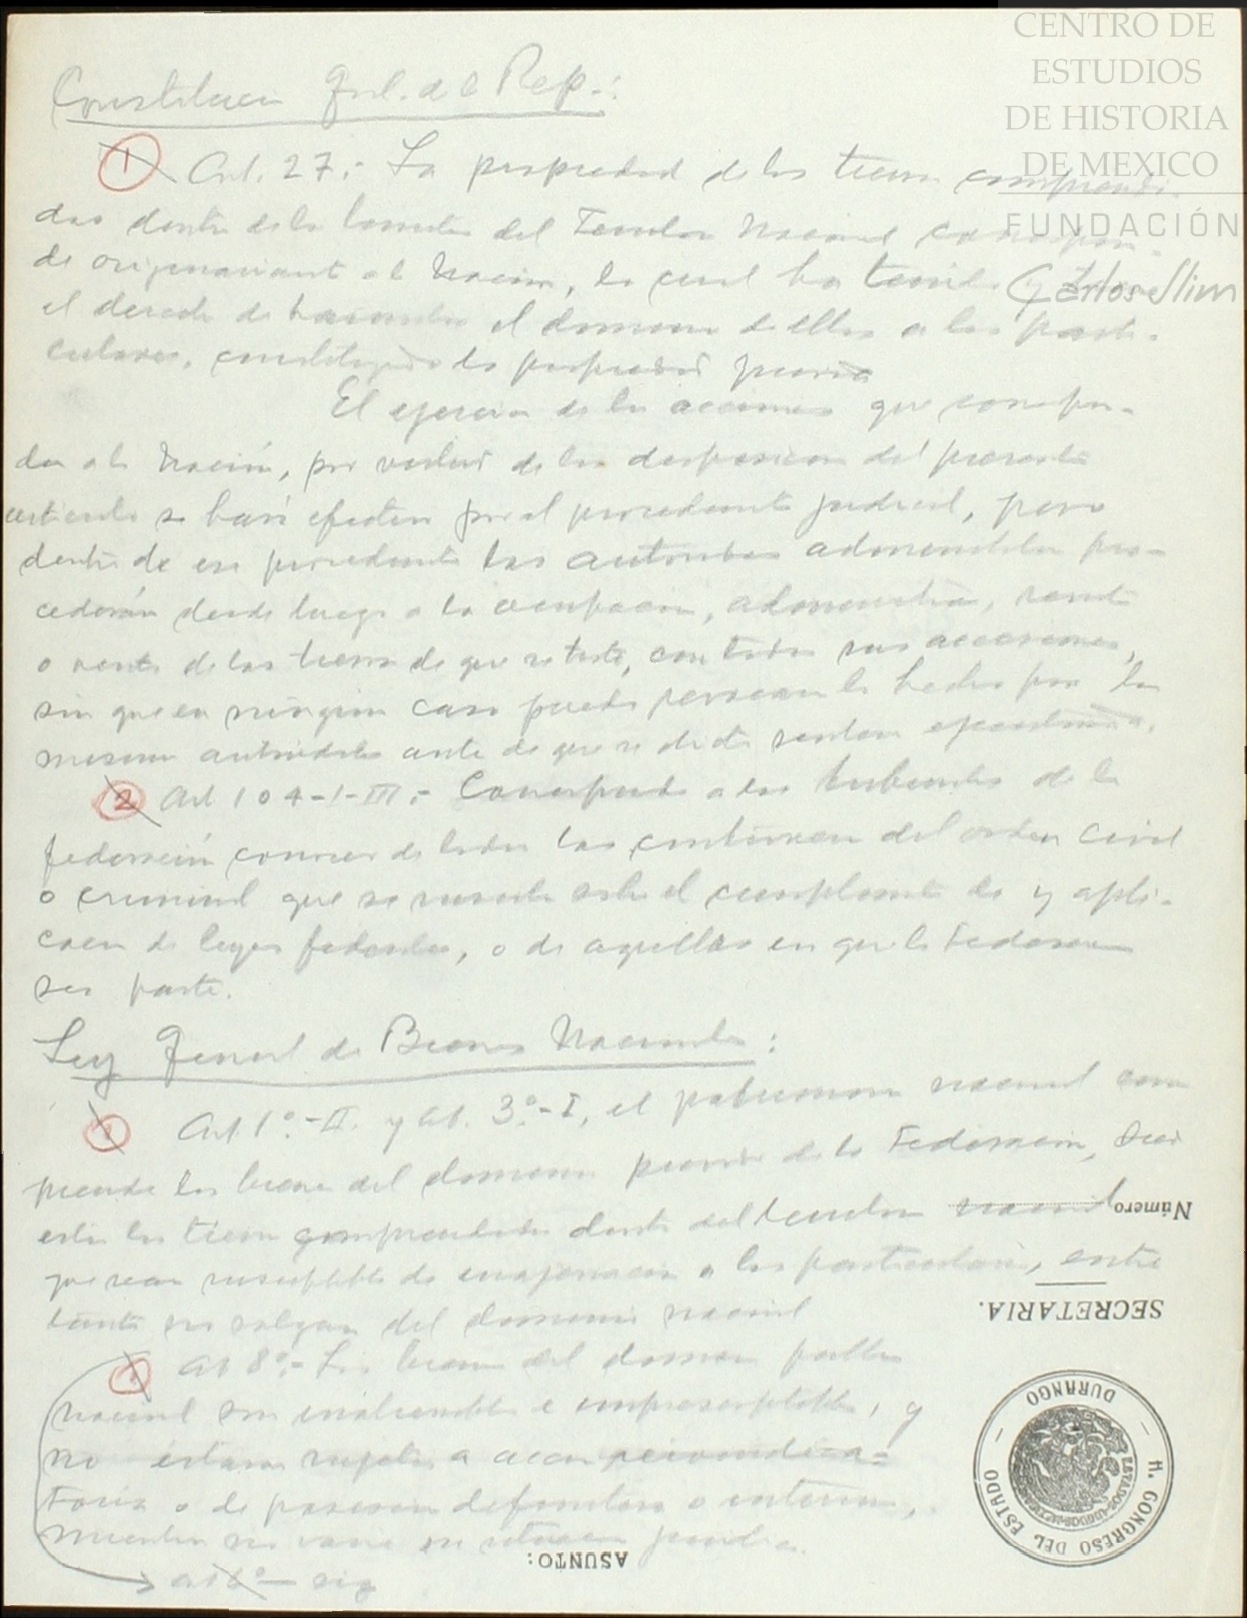 CENTRO DE
ESTUDIOS
DE HISTORIA
DE MEXICO
FUNDACIÓN
Carlos Slim
Constitucion Gral. de la Rep.:
1 Art. 27.- La propiedad de las tierras comprendi-
das dentro de los limites del Territorio Nacional correspon-
de originariamente a la Nacion, la cual ha tenido y tiene
el derecho de transmitir el dominio de ellas a los parti-
culares, constituyendo la propiedad privada
El ejercicio de las acciones que correspon-
den a la Nación, por virtud de las disposiciones del presente
articulo se hará efectivo por el procedimiento judicial, pero
dentro de ese procedimiento las autoridades administrativas pro-
cederán desde luego a la ocupacion, administracion, remate
o venta de las tierras de que se trate, con todas sus accesiones,
sin que en ningún caso pueda revocarse lo hecho por las
mismas autoridades antes de que se dicte sentencia ejecutoriada.
2 Art 104-I-III.- Corresponde a los tribunales de la
federación conocer de todas las controversias del orden civil
o criminal que se susciten sobre el cumplimiento de y apli-
cacion de leyes federales, o de aquellas en que la Federacion
sea parte.
Ley General de Bienes Nacionales:
1 Art. 1º.-II. y Art. 3º.-I, el patrimonio nacional com
prende los bienes del dominio privado de la Federacion,
esto las tierras comprendidas dentro del territorio nacional
que sean susceptibles de enajenacion a los particulares, entre
tanto no salgan del dominio nacional
Art 8º.- Los bienes del dominio publico
nacional son inalienables e imprescriptibles, y
no estaran sujetos a accion reivindica-
toria o de posesion definitiva o interina,
mientras no varie su situacion juridica.
Número
SECRETARIA.
H. CONGRESO DEL ESTADO
DURANGO
ESTADOS UNIDOS MEXICANOS
ASUNTO: